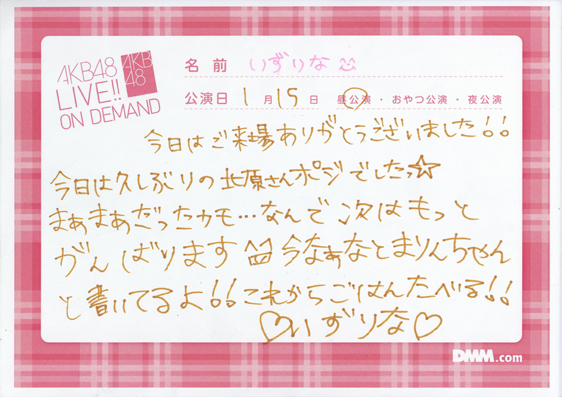 AKB48
LIVE!!
ON DEMAND
AKB
48
名前 いずりな
公演日 1月15日 昼公演・おやつ公演・夜公演
今日はご来場ありがとうございました!!
今日は久しぶりの北原さんポジでしたっ☆
まぁまぁだったカモ…なんで次はもっと
がんばります 今なぁなとまりんちゃん
と書いてるよ!!これからごはんたべる!!
♡いずりな♡
DMM.com